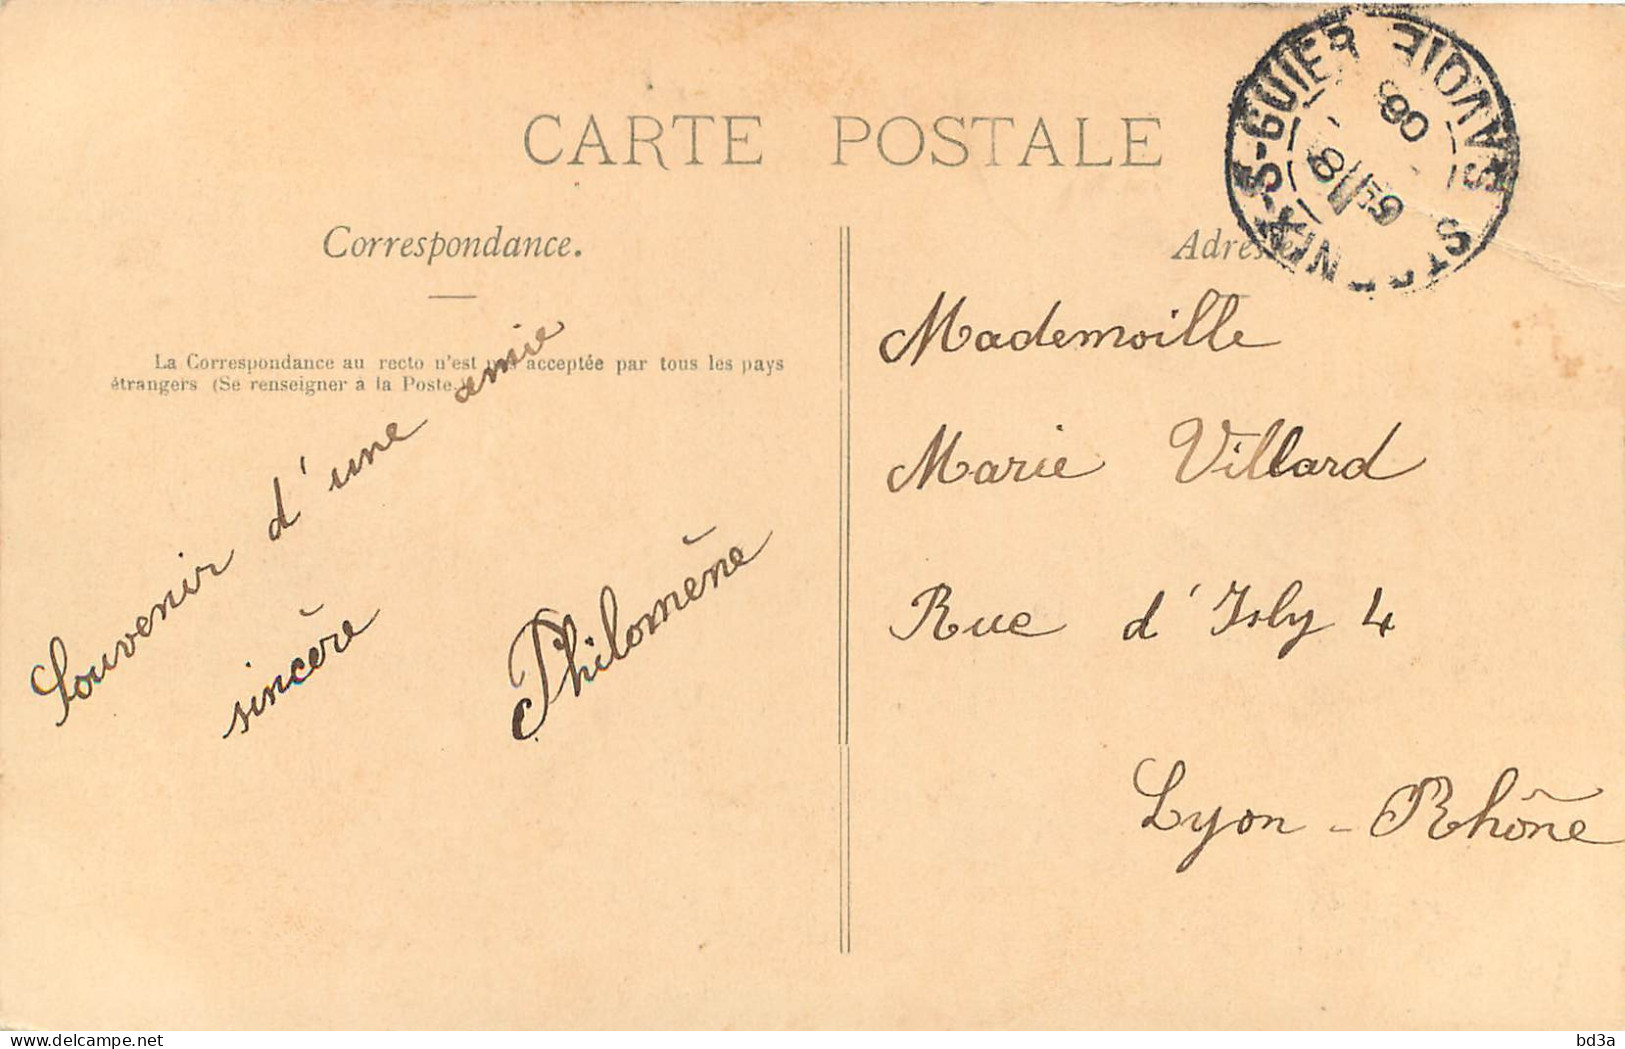 CARTE POSTALE
Correspondance.
La Correspondance au recto n'est pas acceptée par tous les pays
étrangers (Se renseigner à la Poste.)
Souvenir d'une amie
sincère
Philomène
Adresse
Mademoille
Marie Villard
Rue d'Isly 4
Lyon - Rhône
S-GUIER SAVOIE
06
delcampe.net
bd3a